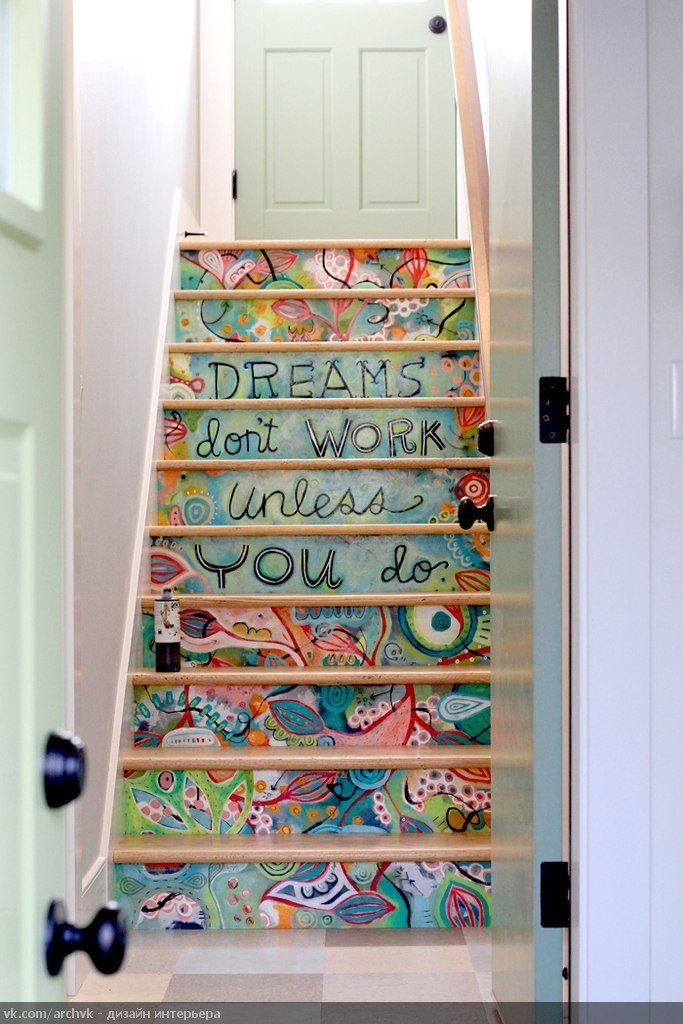 DREAMS
don't WORK
unless
YOU do.
vk.com/archvk - дизайн интерьера